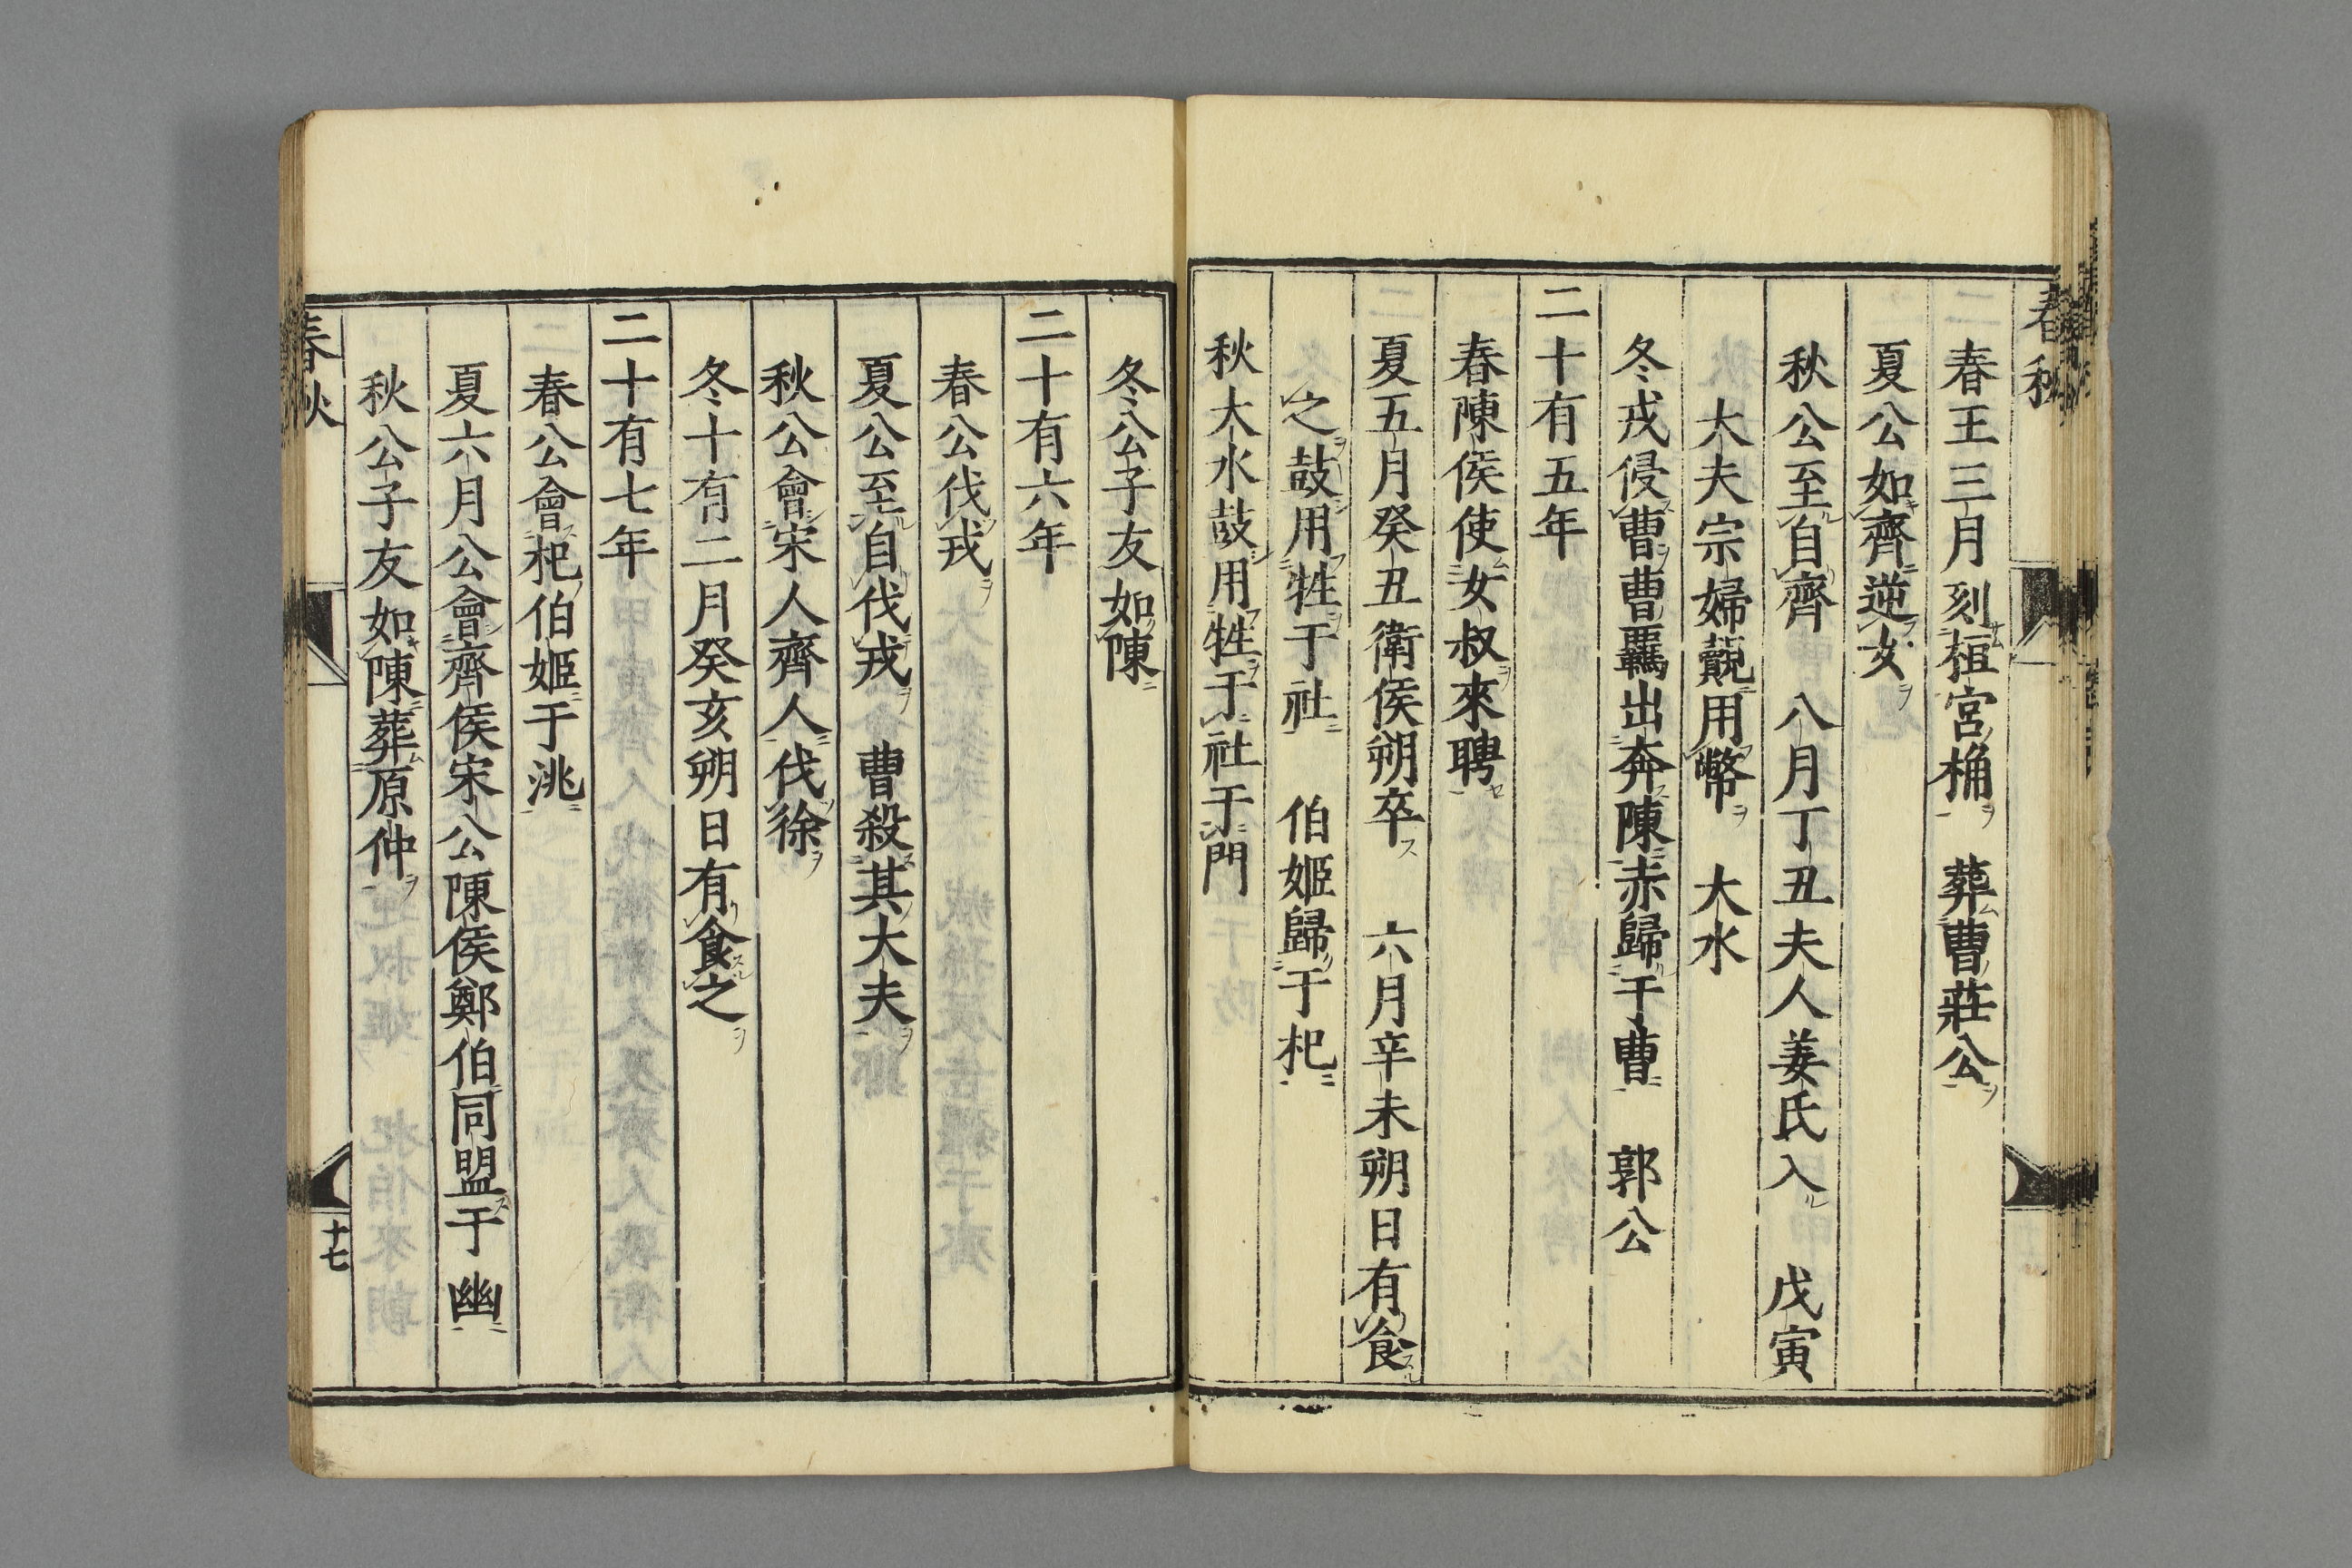 春秋
春王三月刻桓宮桷 葬曹莊公
夏公如齊逆女
秋公至自齊 八月丁丑夫人姜氏入 戊寅
大夫宗婦覿用幣 大水
冬戎侵曹曹羈出奔陳赤歸于曹 郭公
二十有五年
春陳侯使女叔來聘
夏五月癸丑衛侯朔卒 六月辛未朔日有食
之鼓用牲于社 伯姬歸于杞
秋大水鼓用牲于社于門
冬公子友如陳
二十有六年
春公伐戎
夏公至自伐戎 曹殺其大夫
秋公會宋人齊人伐徐
冬十有二月癸亥朔日有食之
二十有七年
春公會杞伯姬于洮
夏六月公會齊侯宋公陳侯鄭伯同盟于幽
秋公子友如陳葬原仲
春秋
十七